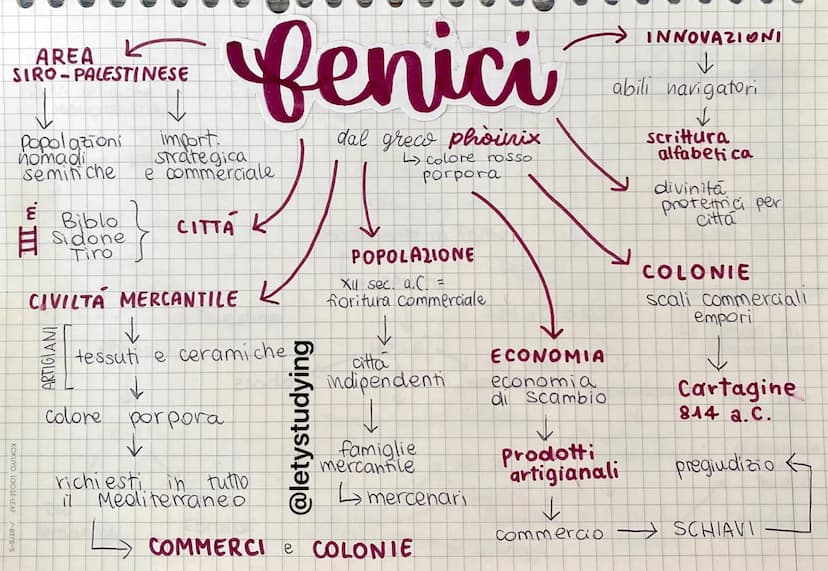 fenici
dal greco phòinix
colore rosso
porpora
AREA
SIRO-PALESTINESE
popolazioni
nomadi
semitiche
import.
strategica
e commerciale
CITTÀ
III m.
Biblo
Sidone
Tiro
CIVILTÀ MERCANTILE
ARTIGIANI
tessuti e ceramiche
colore porpora
richiesti in tutto
il Mediterraneo
COMMERCI e COLONIE
@letystudying
POPOLAZIONE
XII sec. a.C. =
fioritura commerciale
città
indipendenti
famiglie
mercantile
mercenari
ECONOMIA
economia
di scambio
Prodotti
artigianali
commercio
SCHIAVI
pregiudizio
COLONIE
scali commerciali
empori
Cartagine
814 a.C.
INNOVAZIONI
abili navigatori
scrittura
alfabetica
divinità
protettrici per
città
KOKUYO LOOSE-LEAF